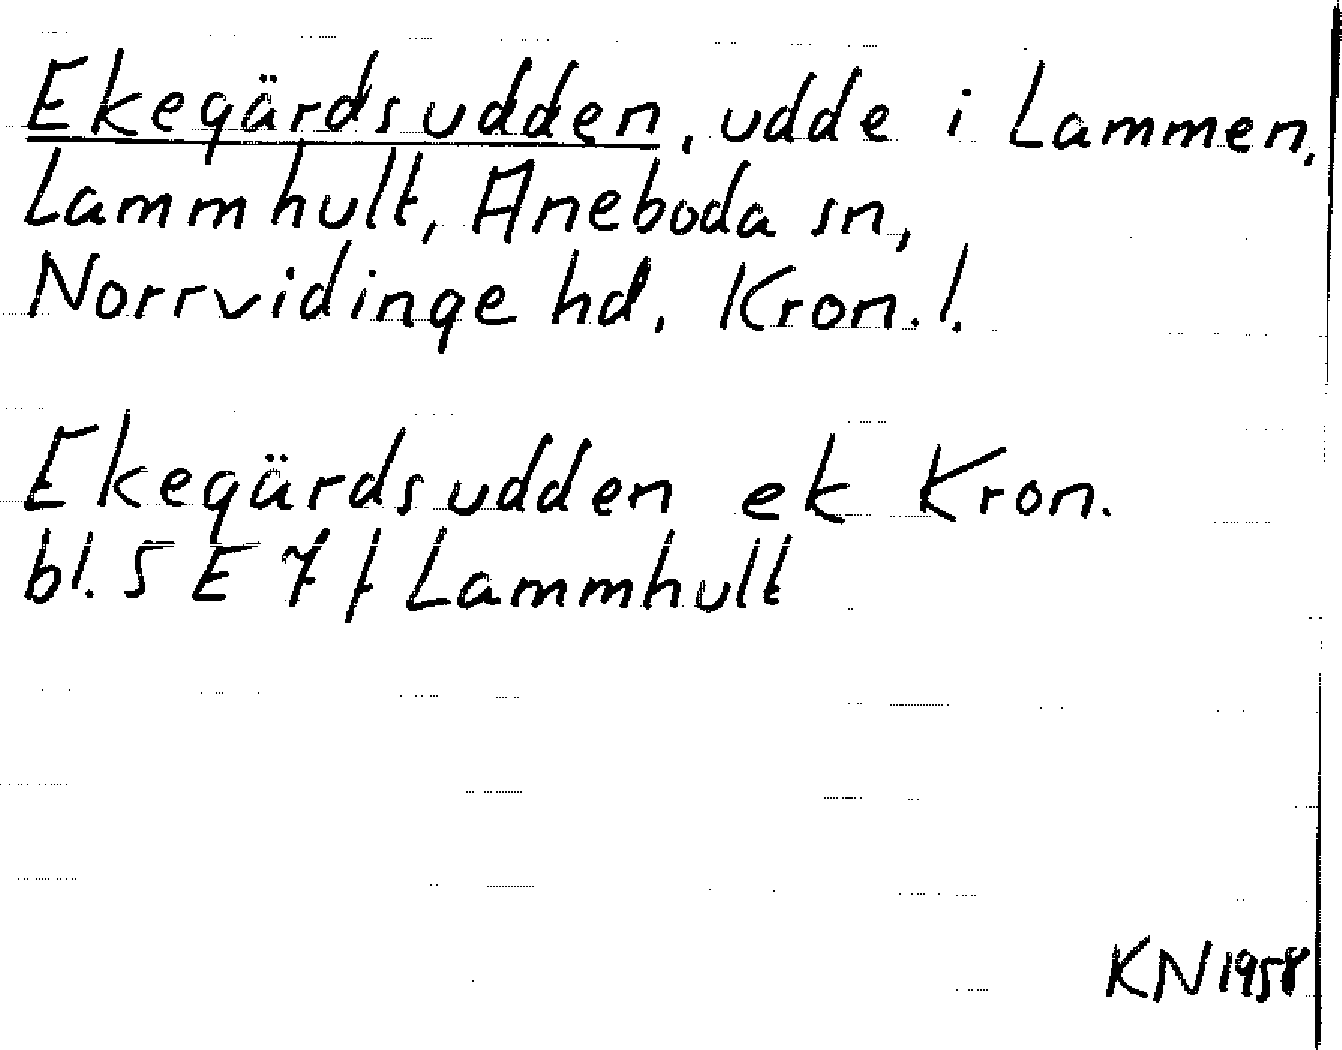 Ekegärdsudden, udde i Lammen,
Lammhult, Aneboda sn,
Norrvidinge hd, Kron. l.
Ekegärdsudden ek Kron.
bl. 5 E 7 f Lammhult
KN 1958